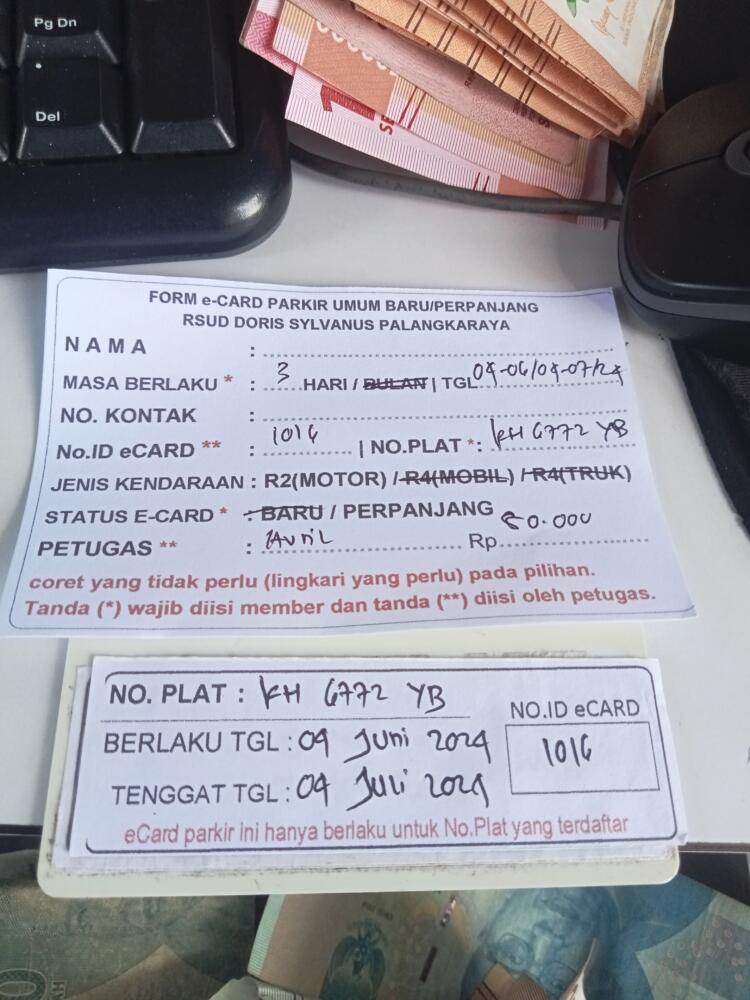 Pg Dn
Del
FORM e-CARD PARKIR UMUM BARU/PERPANJANG
RSUD DORIS SYLVANUS PALANGKARAYA
NAMA :
MASA BERLAKU * : 3 HARI / BULAN | TGL 04-06/04-07/24
NO. KONTAK :
No.ID eCARD ** : 1016 | NO.PLAT *: KH 6772 YB
JENIS KENDARAAN : R2(MOTOR) / R4(MOBIL) / R4(TRUK)
STATUS E-CARD * : BARU / PERPANJANG
PETUGAS ** : Rp 80.000
coret yang tidak perlu (lingkari yang perlu) pada pilihan.
Tanda (*) wajib diisi member dan tanda (**) diisi oleh petugas.
NO. PLAT : KH 6772 YB
NO.ID eCARD
BERLAKU TGL : 04 Juni 2024
1016
TENGGAT TGL : 04 Juli 2024
eCard parkir ini hanya berlaku untuk No.Plat yang terdaftar